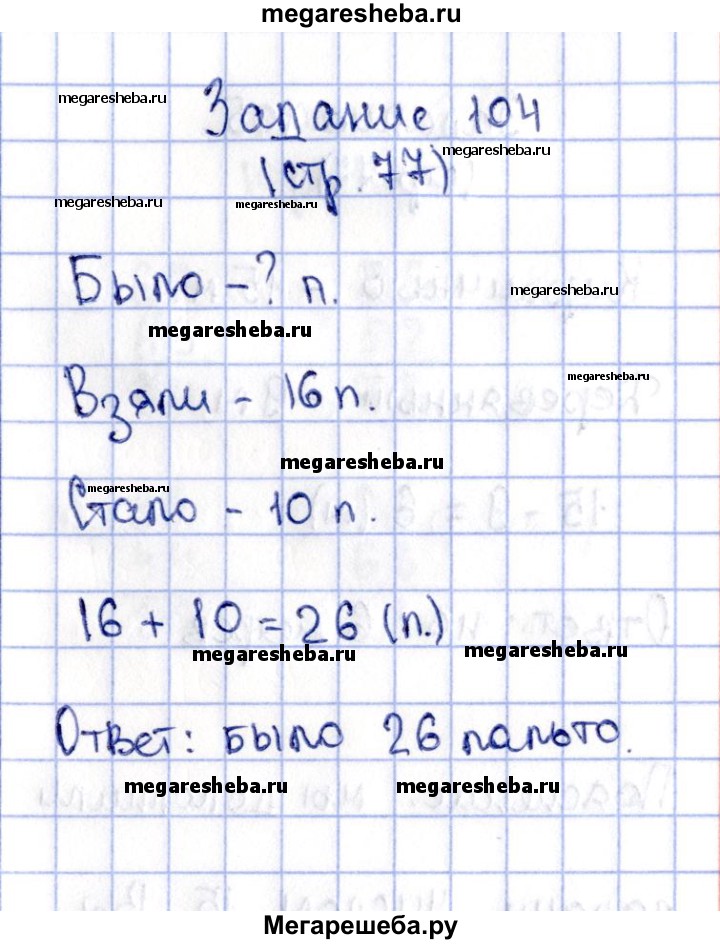 megaresheba.ru
megaresheba.ru
Задание 104
megaresheba.ru
(стр. 77)
megaresheba.ru
megaresheba.ru
Было - ? п.
megaresheba.ru
megaresheba.ru
megaresheba.ru
Взяли - 16 п.
megaresheba.ru
megaresheba.ru
Стало - 10 п.
16 + 10 = 26 (п.)
megaresheba.ru
megaresheba.ru
Ответ: было 26 пальто.
megaresheba.ru
megaresheba.ru
Мегарешеба.ру